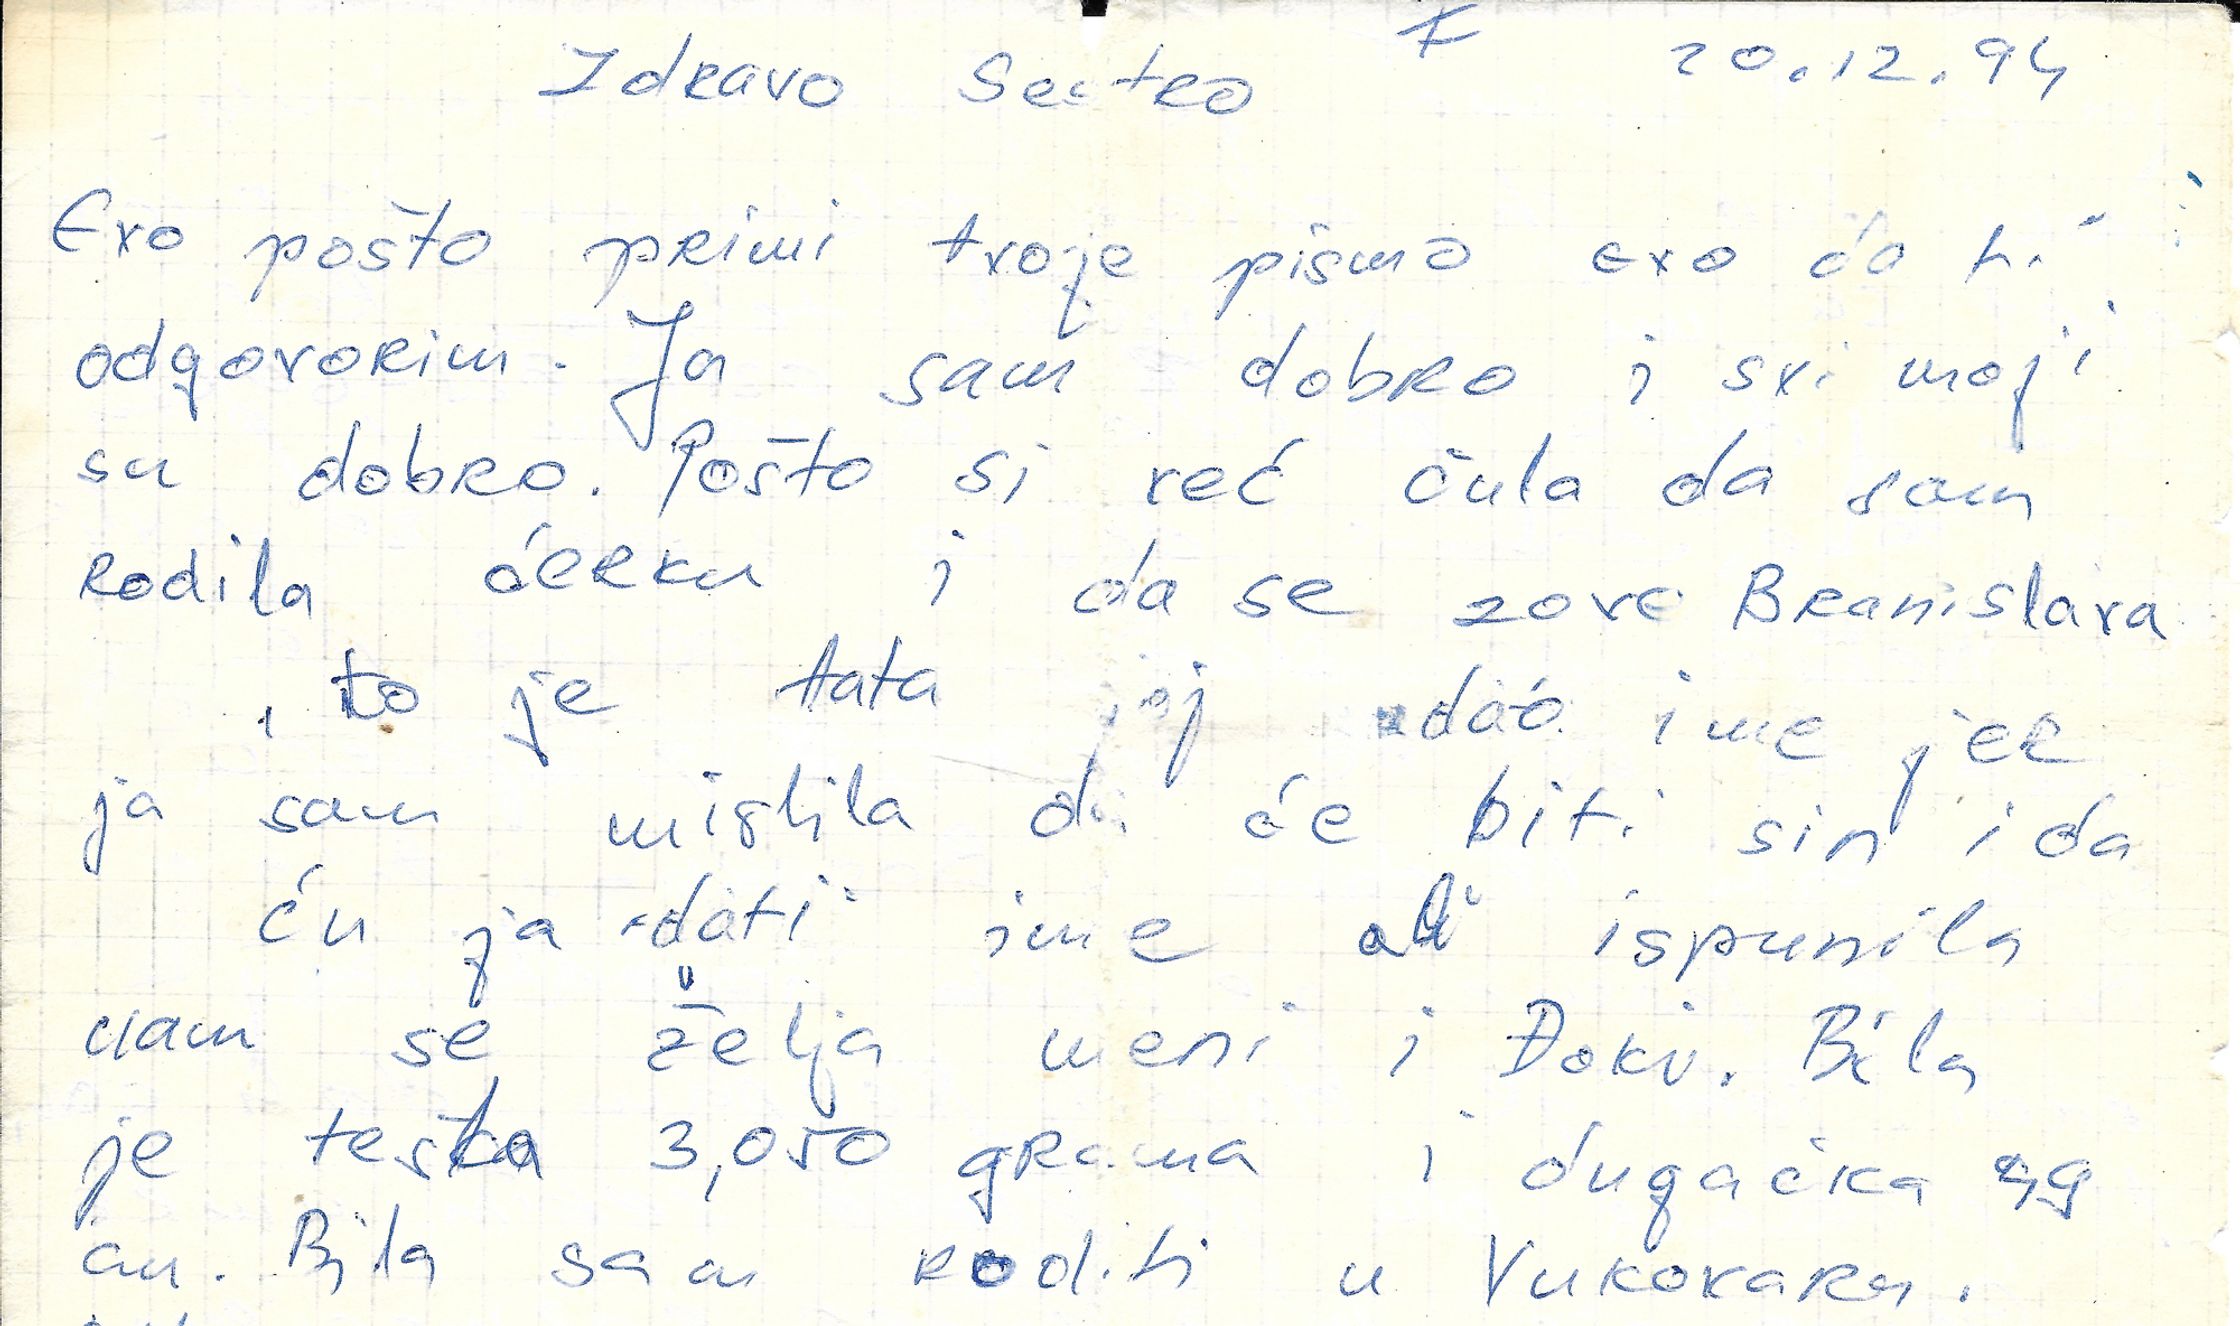 Zdravo Sestro 20.12.94
Evo pošto primi tvoje pismo evo da ti
odgovorim. Ja sam dobro i svi moji
su dobro. Pošto si već čula da sam
rodila ćerku i da se zove Branislava
, to je tata joj dao ime jer
ja sam mislila da će biti sin i da
ću ja dati ime ali ispunila
nam se želja meni i Đoki. Bila
je teška 3,050 grama i dugačka 49
cm. Bila sam roditi u Vukovaru.